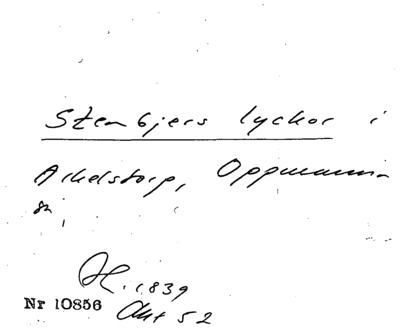 Stenbjers lyckor i
Arkelstorp, Oppmanna
sn,
H. 1839
Nr 10856
Akt 52